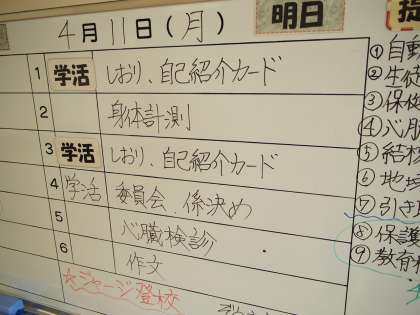 4月11日(月)
明日
1 学活 しおり、自己紹介カード
2 身体計測
3 学活 しおり、自己紹介カード
4 学活 委員会、係決め
5 心臓検診
6 作文
☆ジャージ登校
提
①自動
②生徒
③保健
④心臓
⑤結核
⑥地
⑦引き
⑧保護
⑨教育